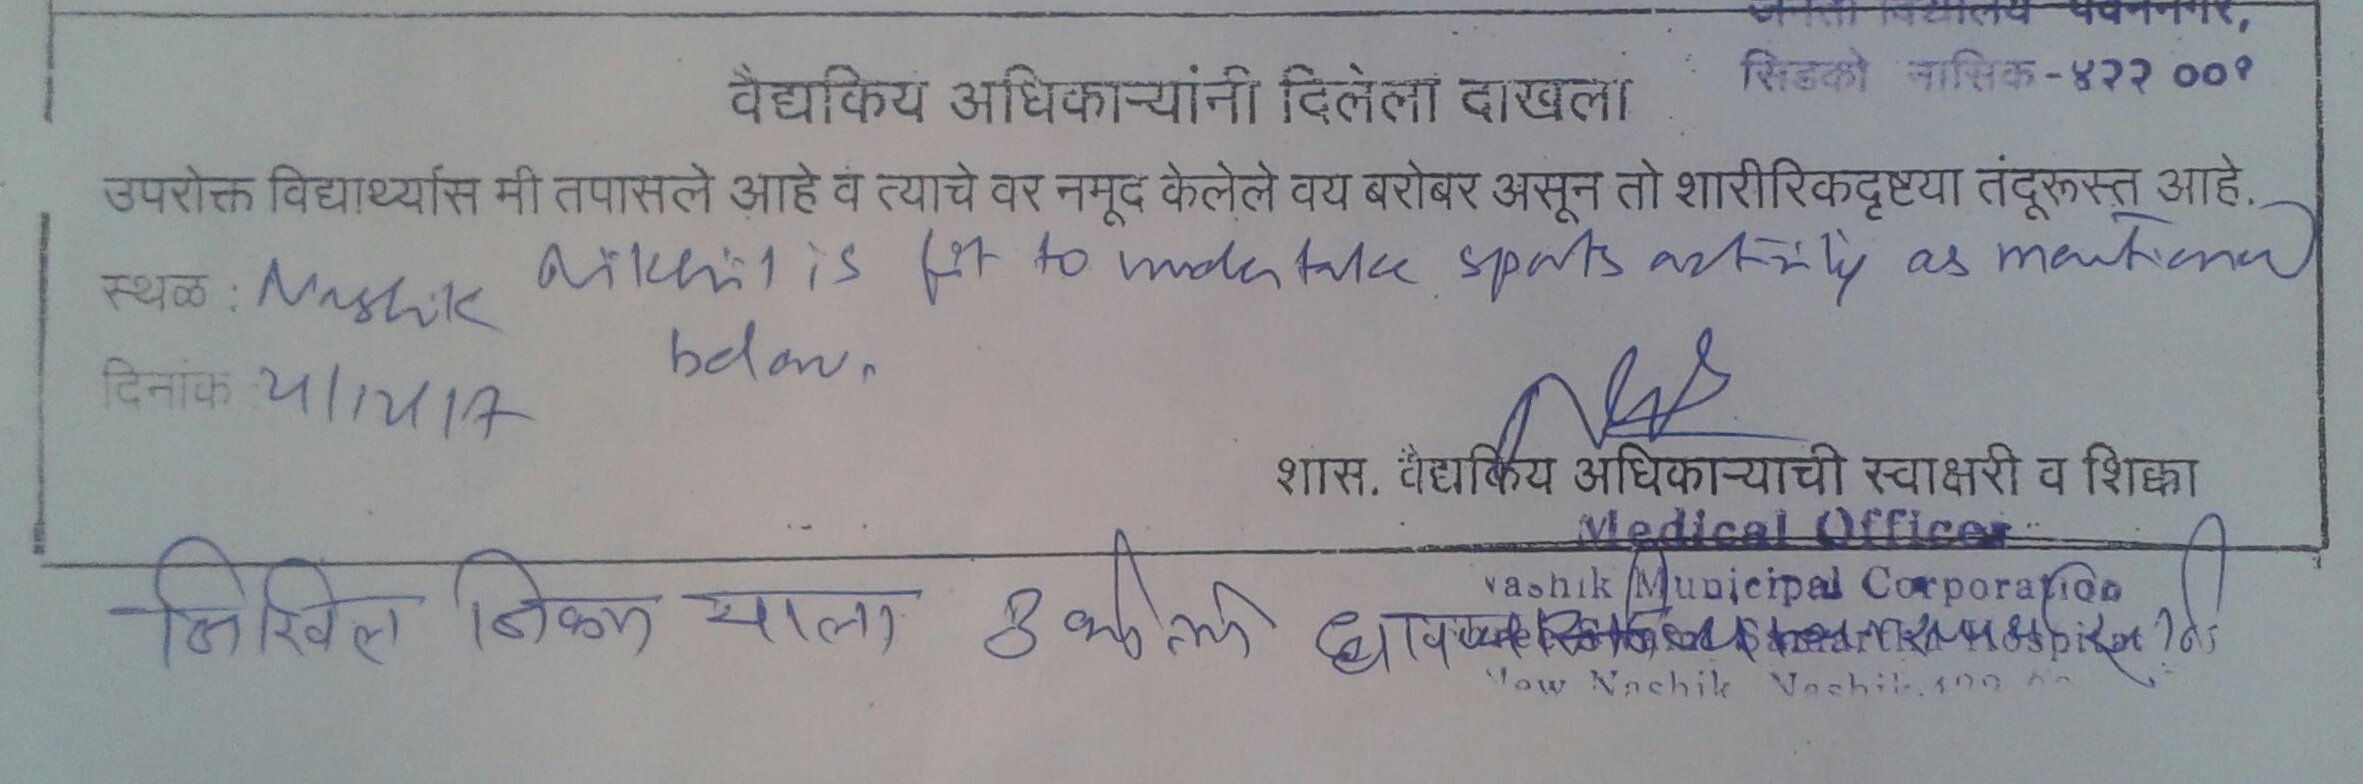 जनता विद्यालय पवननगर,
सिडको नासिक-४२२ ००१
वैद्यकिय अधिकाऱ्यांनी दिलेला दाखला
उपरोक्त विद्यार्थ्यास मी तपासले आहे व त्याचे वर नमूद केलेले वय बरोबर असून तो शारीरिकदृष्टया तंदूरूस्त आहे.
Nikhil is fit to undertake sports activity as mentioned
स्थळ : Nashik
below.
दिनांक
शास. वैद्यकिय अधिकाऱ्याची स्वाक्षरी व शिक्का
Medical Officer
Nashik Municipal Corporation
निखिल निकम याला 3 की मी
New Nashik Nashik